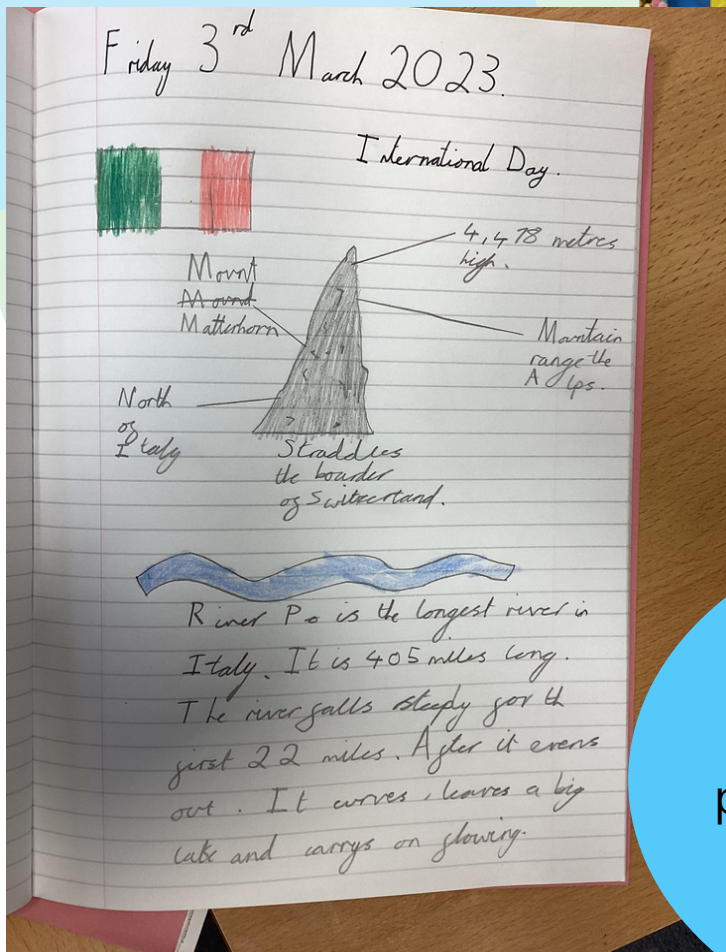 Friday 3rd March 2023.
International Day.
4,478 metres
high.
Mount
Mound
Matterhorn
Mountain
range the
Alps.
North
of
Italy
Straddles
the boarder
of Switzerland.
River Po is the longest river in
Italy. It is 405 miles long.
The river falls steeply for th
first 22 miles. After it evens
out. It curves, leaves a big
lake and carrys on flowing.
p